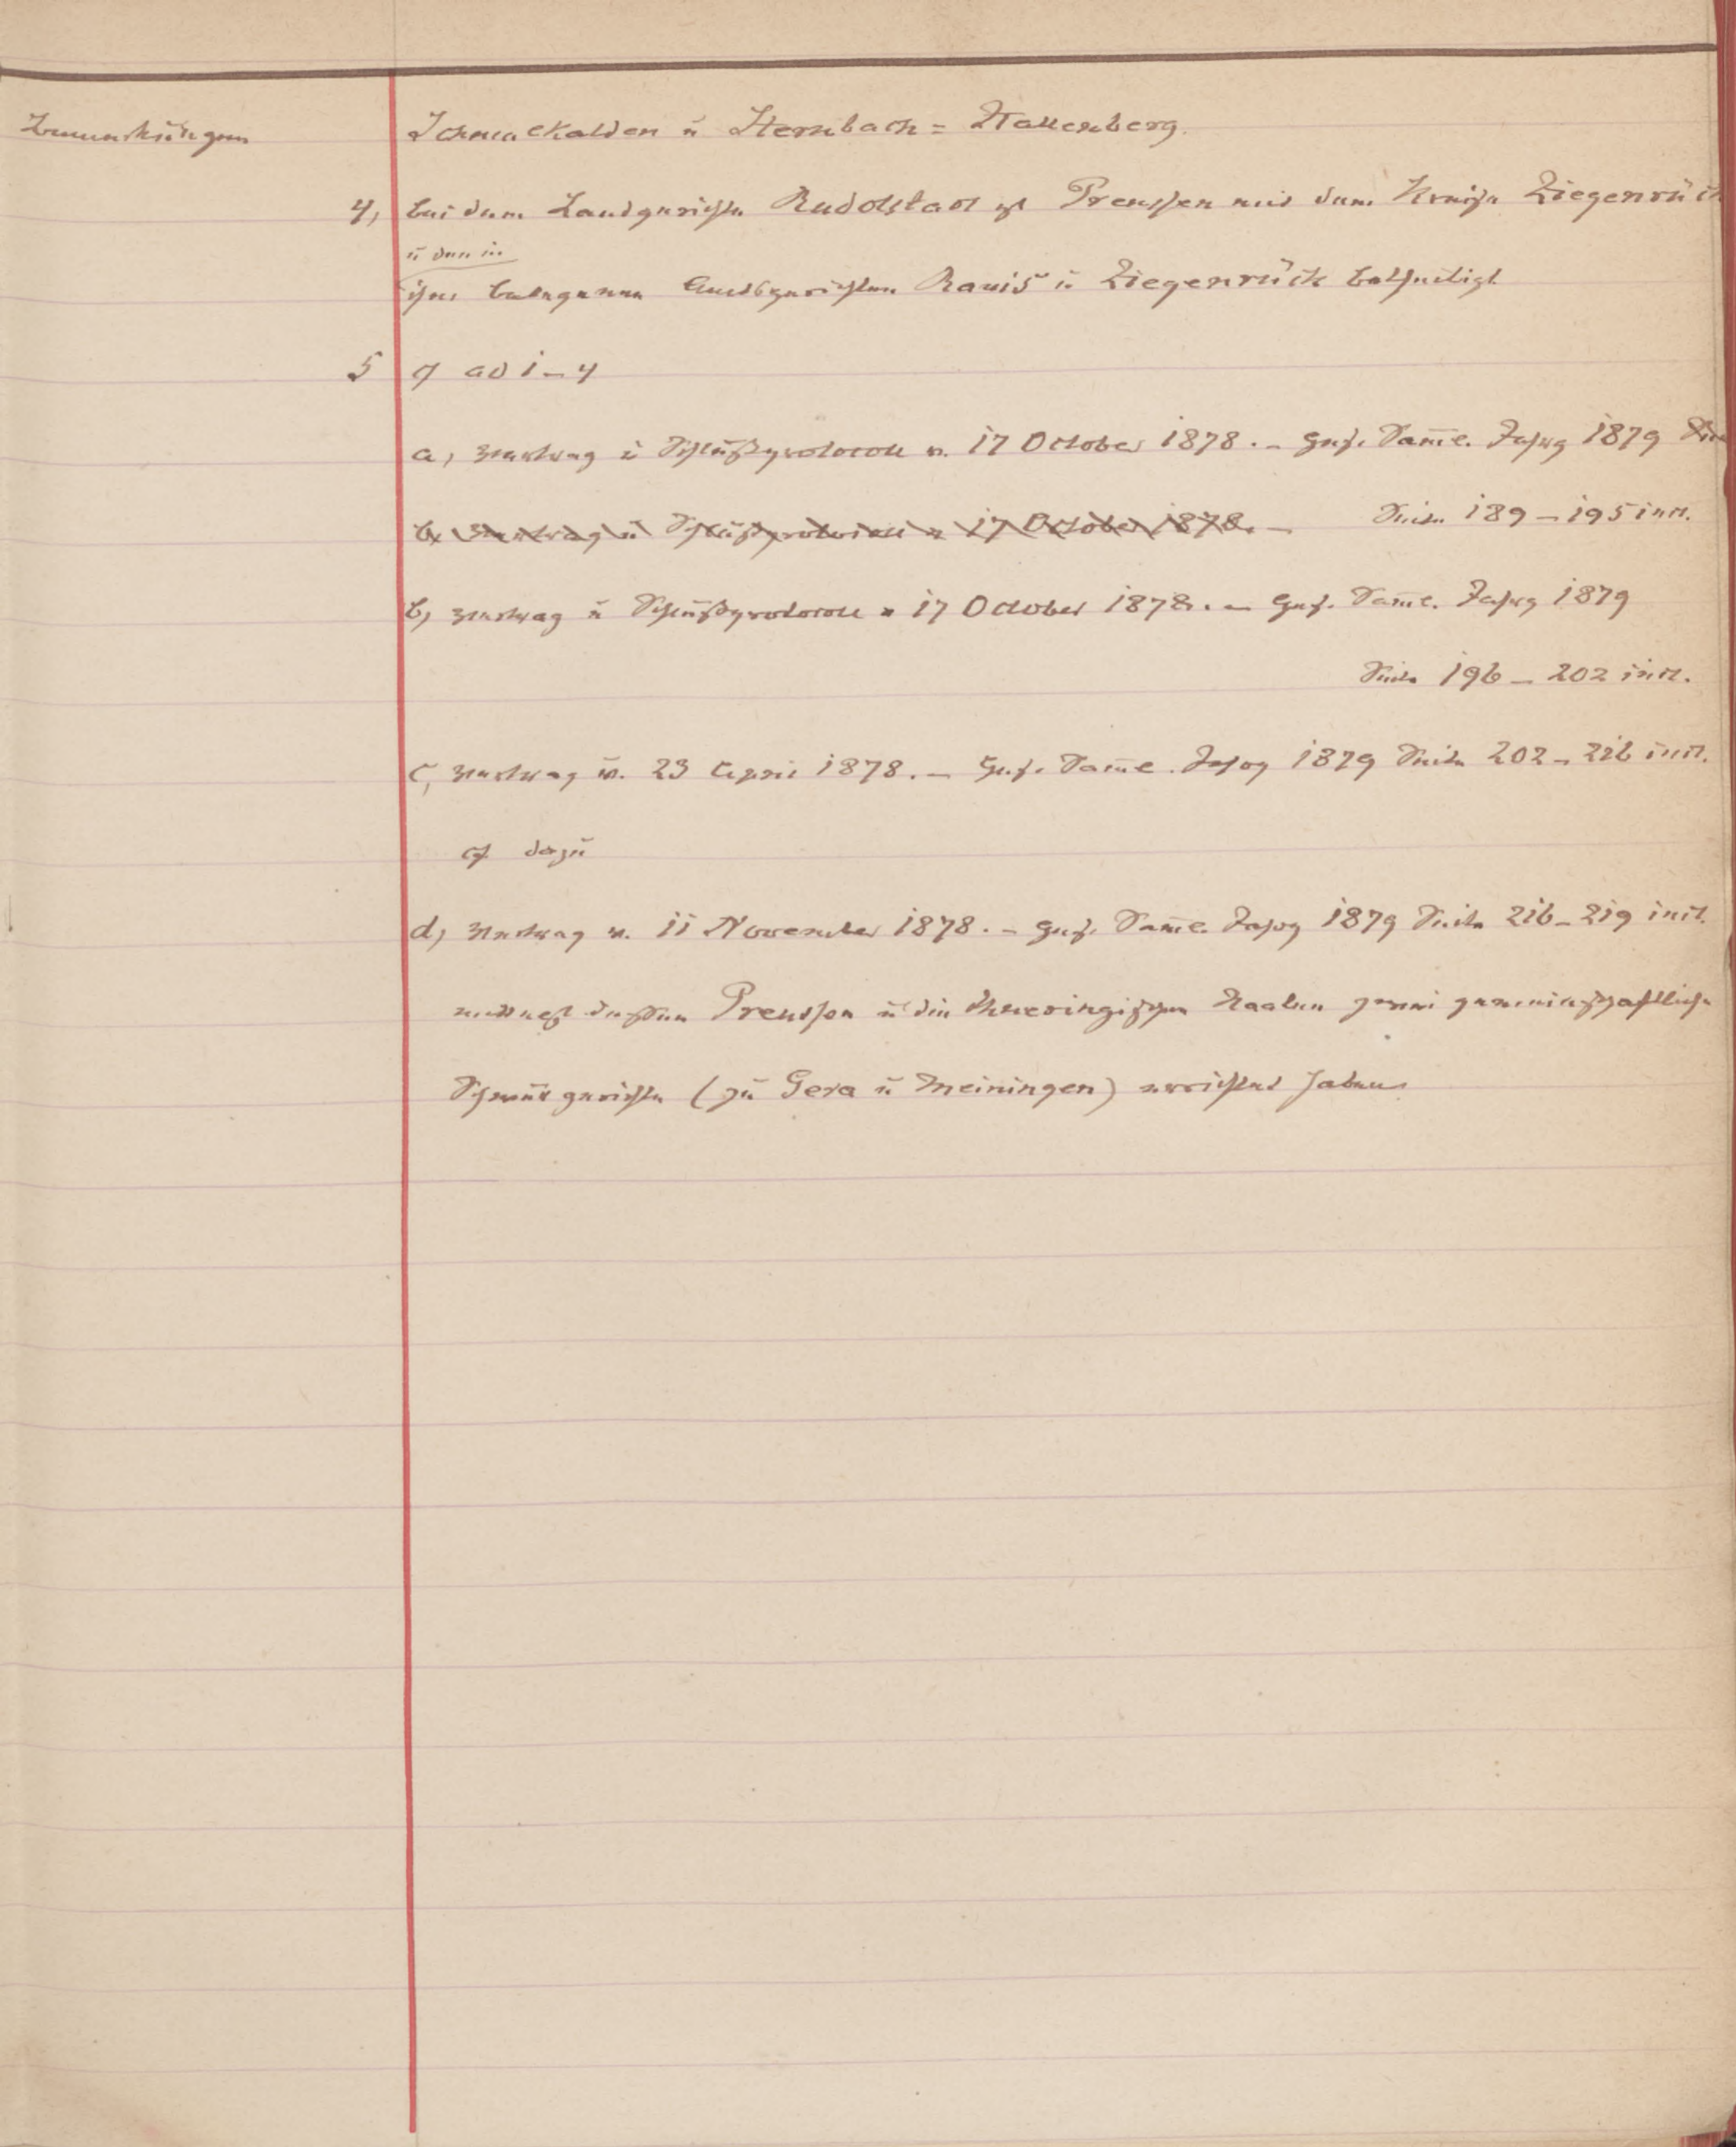 Bemerkungen
Schmalkalden ü Steinbach = Hallenberg.
4, bei dem Landgerichte Rudolstadt ist Preussen mit dem Kreise Ziegenrück
ü den in
ihm belegenen Amtsgerichten Ranis ü Ziegenrück betheiligt
5 cf ad 1 – 4
a, Vertrag ü Schlußprotocoll v. 17 October 1878. – Ges. Samml. Jahrg 1879
b, Vertrag ü Schlußprotocoll v 17 October 1878. – Seite 189 – 195 incl.
b, Vertrag ü Schlußprotocoll v 17 October 1878. – Ges. Samml. Jahrg 1879
Seite 196 – 202 incl.
c, Vertrag v. 23 April 1878. – Ges. Samml. Jahrg 1879 Seite 202 – 216 incl.
cf dazü
d, Vertrag v. 11 November 1878. – Ges. Samml. Jahrg 1879 Seite 216 – 219 incl.
nach dessen Preussen ü die Thueringischen Staaten zwei gemeinschaftliche
Schwürgerichte (zü Gera ü Meiningen) errichtet haben